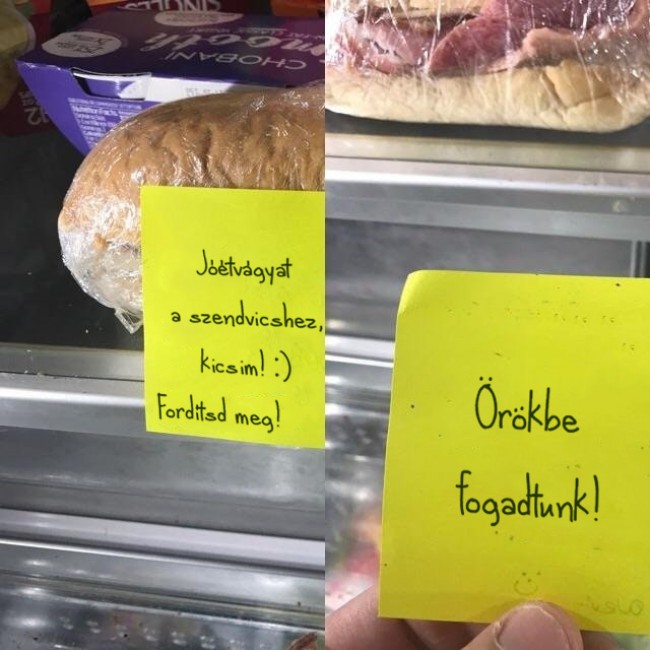 CHOBANI
Smooth
Nutrition Facts
Jóétvágyat
a szendvicshez,
kicsim! :)
Fordítsd meg!
Örökbe
fogadtunk!